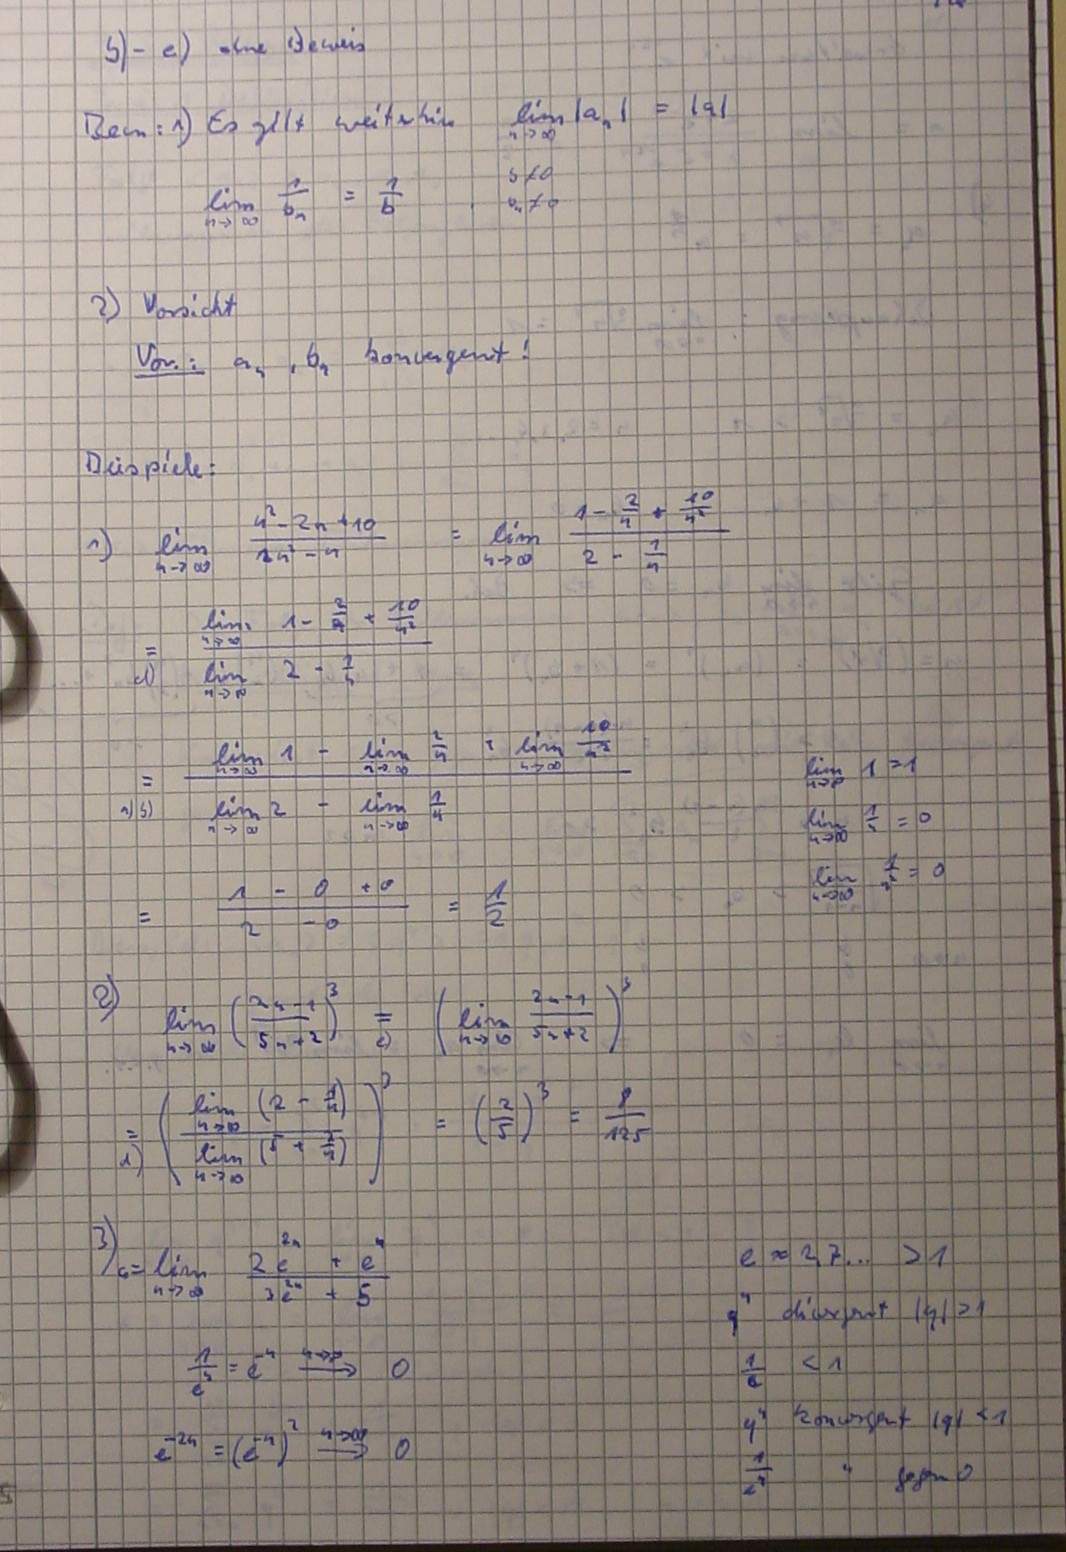 b) - e) ohne Beweis
Bem: 1) Es gilt weiterhin lim n→∞ |aₙ| = |a|
lim n→∞ 1/bₙ = 1/b , b≠0
bₙ≠0
2) Vorsicht
Vor.: aₙ, bₙ konvergent!
Beispiele:
1) lim n→∞ (n² - 2n + 10)/(2n² - n) = lim n→∞ (1 - 2/n + 10/n²)/(2 - 1/n)
= d) (lim n→∞ 1 - 2/n + 10/n²)/(lim n→∞ 2 - 1/n)
= a)b) (lim n→∞ 1 - lim n→∞ 2/n + lim n→∞ 10/n²)/(lim n→∞ 2 - lim n→∞ 1/n)
lim n→∞ 1 = 1
lim n→∞ 1/n = 0
lim n→∞ 1/n² = 0
= (1 - 0 + 0)/(2 - 0) = 1/2
2) lim n→∞ ((2n-1)/(5n+2))³ = e) (lim n→∞ (2n-1)/(5n+2))³
= d) ((lim n→∞ (2 - 1/n))/(lim n→∞ (5 + 2/n)))³ = (2/5)³ = 8/125
3) a = lim n→∞ (2e²ⁿ + eⁿ)/(3e²ⁿ + 5)
e ≈ 2,7... > 1
qⁿ divergent |q|>1
1/eⁿ = e⁻ⁿ n→∞ → 0
1/e < 1
qⁿ konvergent |q| < 1
e⁻²ⁿ = (e⁻ⁿ)² n→∞ → 0
1/eⁿ " gegen 0